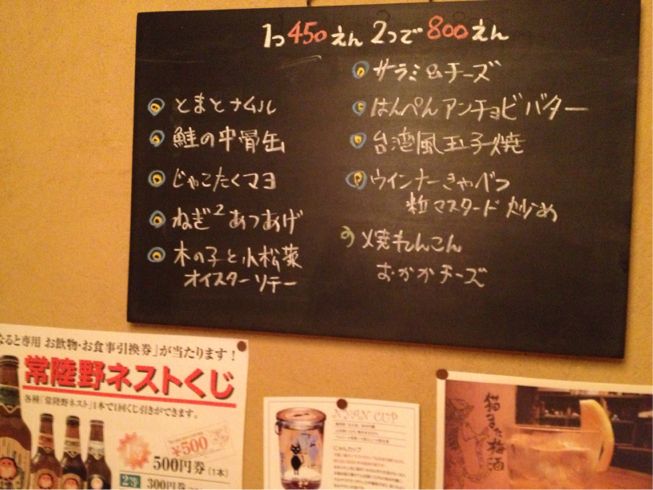 1つ450えん 2つで800えん
とまとナムル
鮭の中骨缶
じゃこたくマヨ
ねぎ²あつあげ
木の子と小松菜
オイスターソテー
サラミ&チーズ
はんぺんアンチョビバター
台湾風玉子焼
ウインナーきゃべつ
粒マスタード炒め
焼れんこん
おかかチーズ
なると専用 お飲物・お食事引換券」が当たります!
常陸野ネストくじ
各種「常陸野ネスト」1本で1回くじ引きができます。
¥500
500円券(1本)
2等 300円券
NYAN CUP
にゃんカップ
猫また梅酒